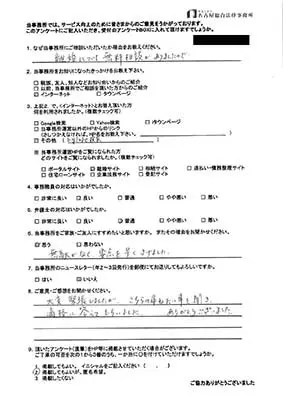 名古屋総合法律事務所
当事務所では、サービス向上のために皆さまからのご意見をうかがっております。
このアンケートにご記入いただき、受付のアンケートBOXに入れて頂けますでしょうか。
1. なぜ当事務所にご相談いただいたか理由をお教えください。
離婚について無料相談がありましたので
2. 当事務所をお知りになったきっかけをお教え下さい。
□親族、友人、知人などお知り合いからのご紹介
□以前、当事務所でご相談を頂いた方からのご紹介
☑インターネット □タウンページ
3. 上記2.で、(インターネット)とお答え頂いた方
何を利用されましたか。(複数チェック可)
□Google検索 □Yahoo検索 □iタウンページ
□当事務所運営以外のHPからのリンク
☑その他
※ 当事務所運営HPをご覧になられた方
どのサイトをご覧になられましたか。(複数チェック可)
□ポータルサイト ☑離婚サイト □相続サイト □過払い・債務整理サイト
□住宅ローンサイト □企業法務サイト □登記サイト
4. 事務職員の対応はいかがでしたか。
□非常に良い □良い ☑普通 □やや悪い □悪い
5. 弁護士の対応はいかがでしたか。
□非常に良い □良い ☑普通 □やや悪い □悪い
6. 当事務所をご家族・ご友人にすすめたいと思いますか。またその理由をお聞かせください。
☑思う □思わない
無駄がなく 要点を早く
7. 当事務所のニュースレター(年2~3回発行)を郵便にてお送りしてもよろしいですか。
□はい ☑いいえ
8. ご意見・ご感想をお聞かせください。
大変 緊張しましたが、
答えてもらいました。 ありがとうございました
9. 頂いたアンケート(直筆)をHP等に掲載させていただく場合がございます。
1. 掲載してもよい。イニシャルをご記入ください( . )
2. 掲載してもよいが、匿名希望。
3. 掲載したくない
ご協力ありがとうございました